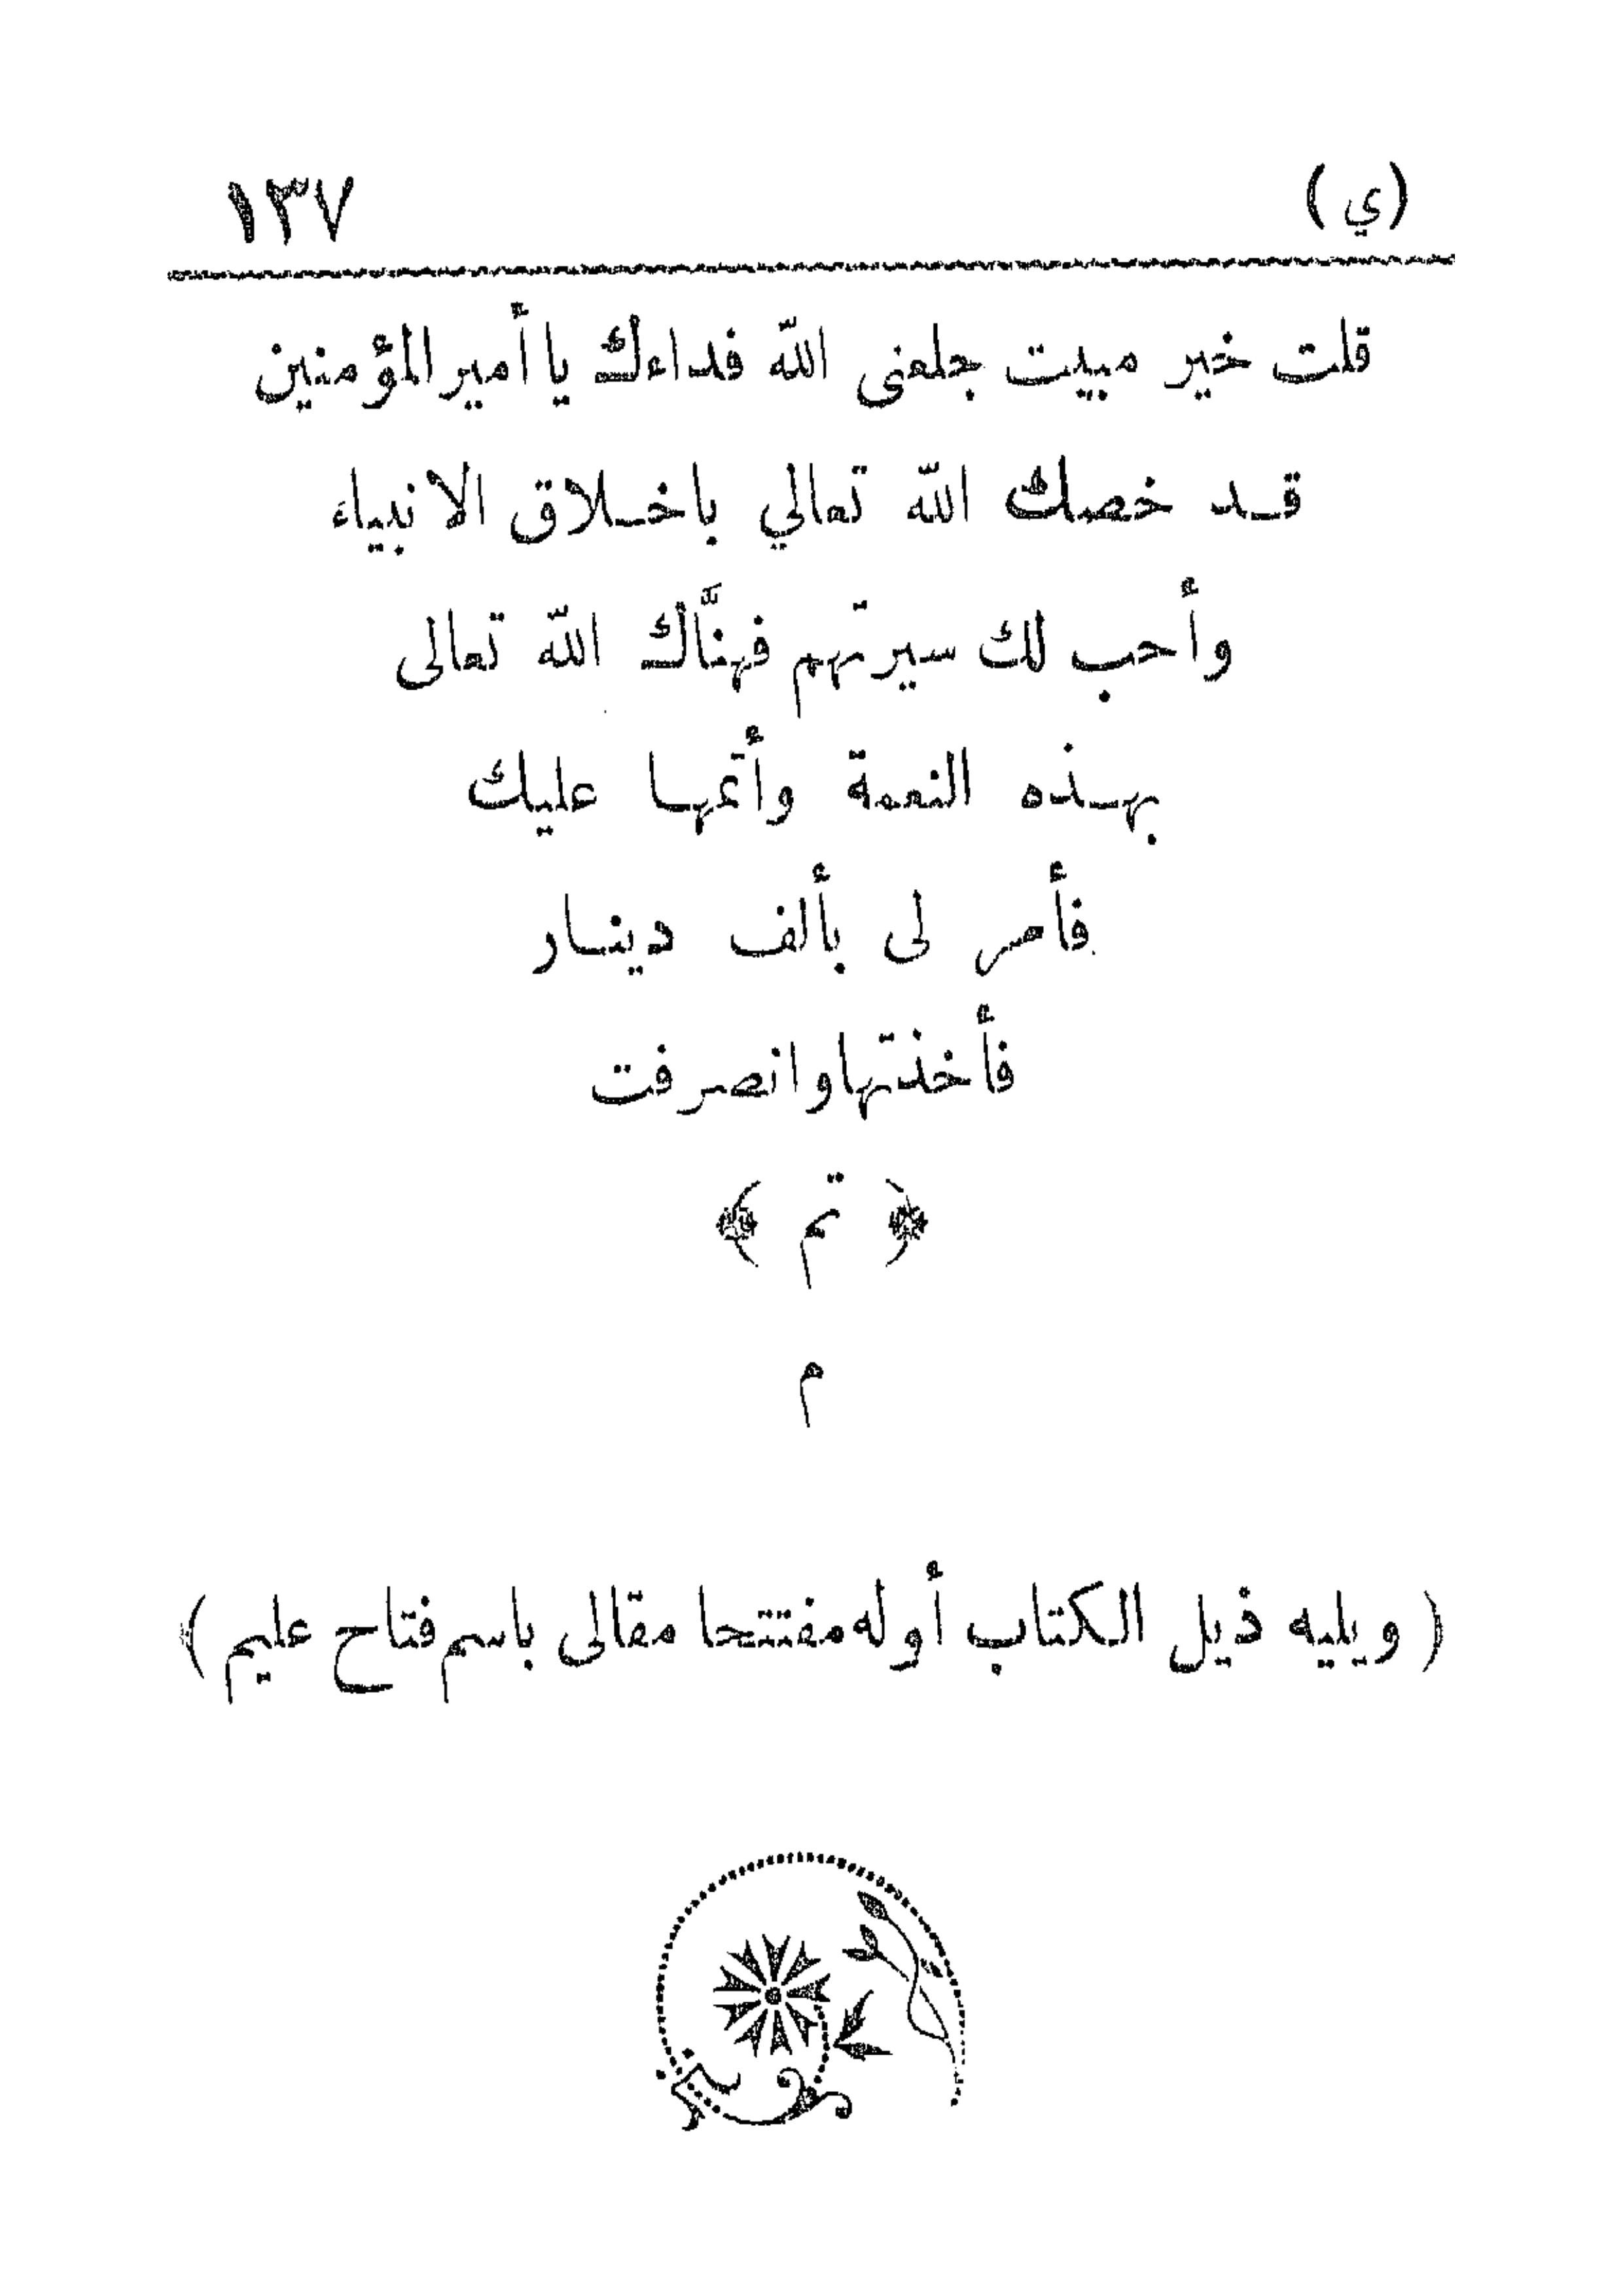 (ي) ١٣٧
قلت خير مبيت جلعنى الله فداءك يا أمير المؤمنين
قد خصك الله تعالي باخلاق الانبياء
وأحب لك سيرتهم فهنَّاك الله تعالى
بهذه النعمة وأتمها عليك
فأمر لى بألف دينار
فأخذتها وانصرفت
﴿ تم ﴾
م
( ويليه ذيل الكتاب أوله مفتتحا مقالى باسم فتاح عليم )